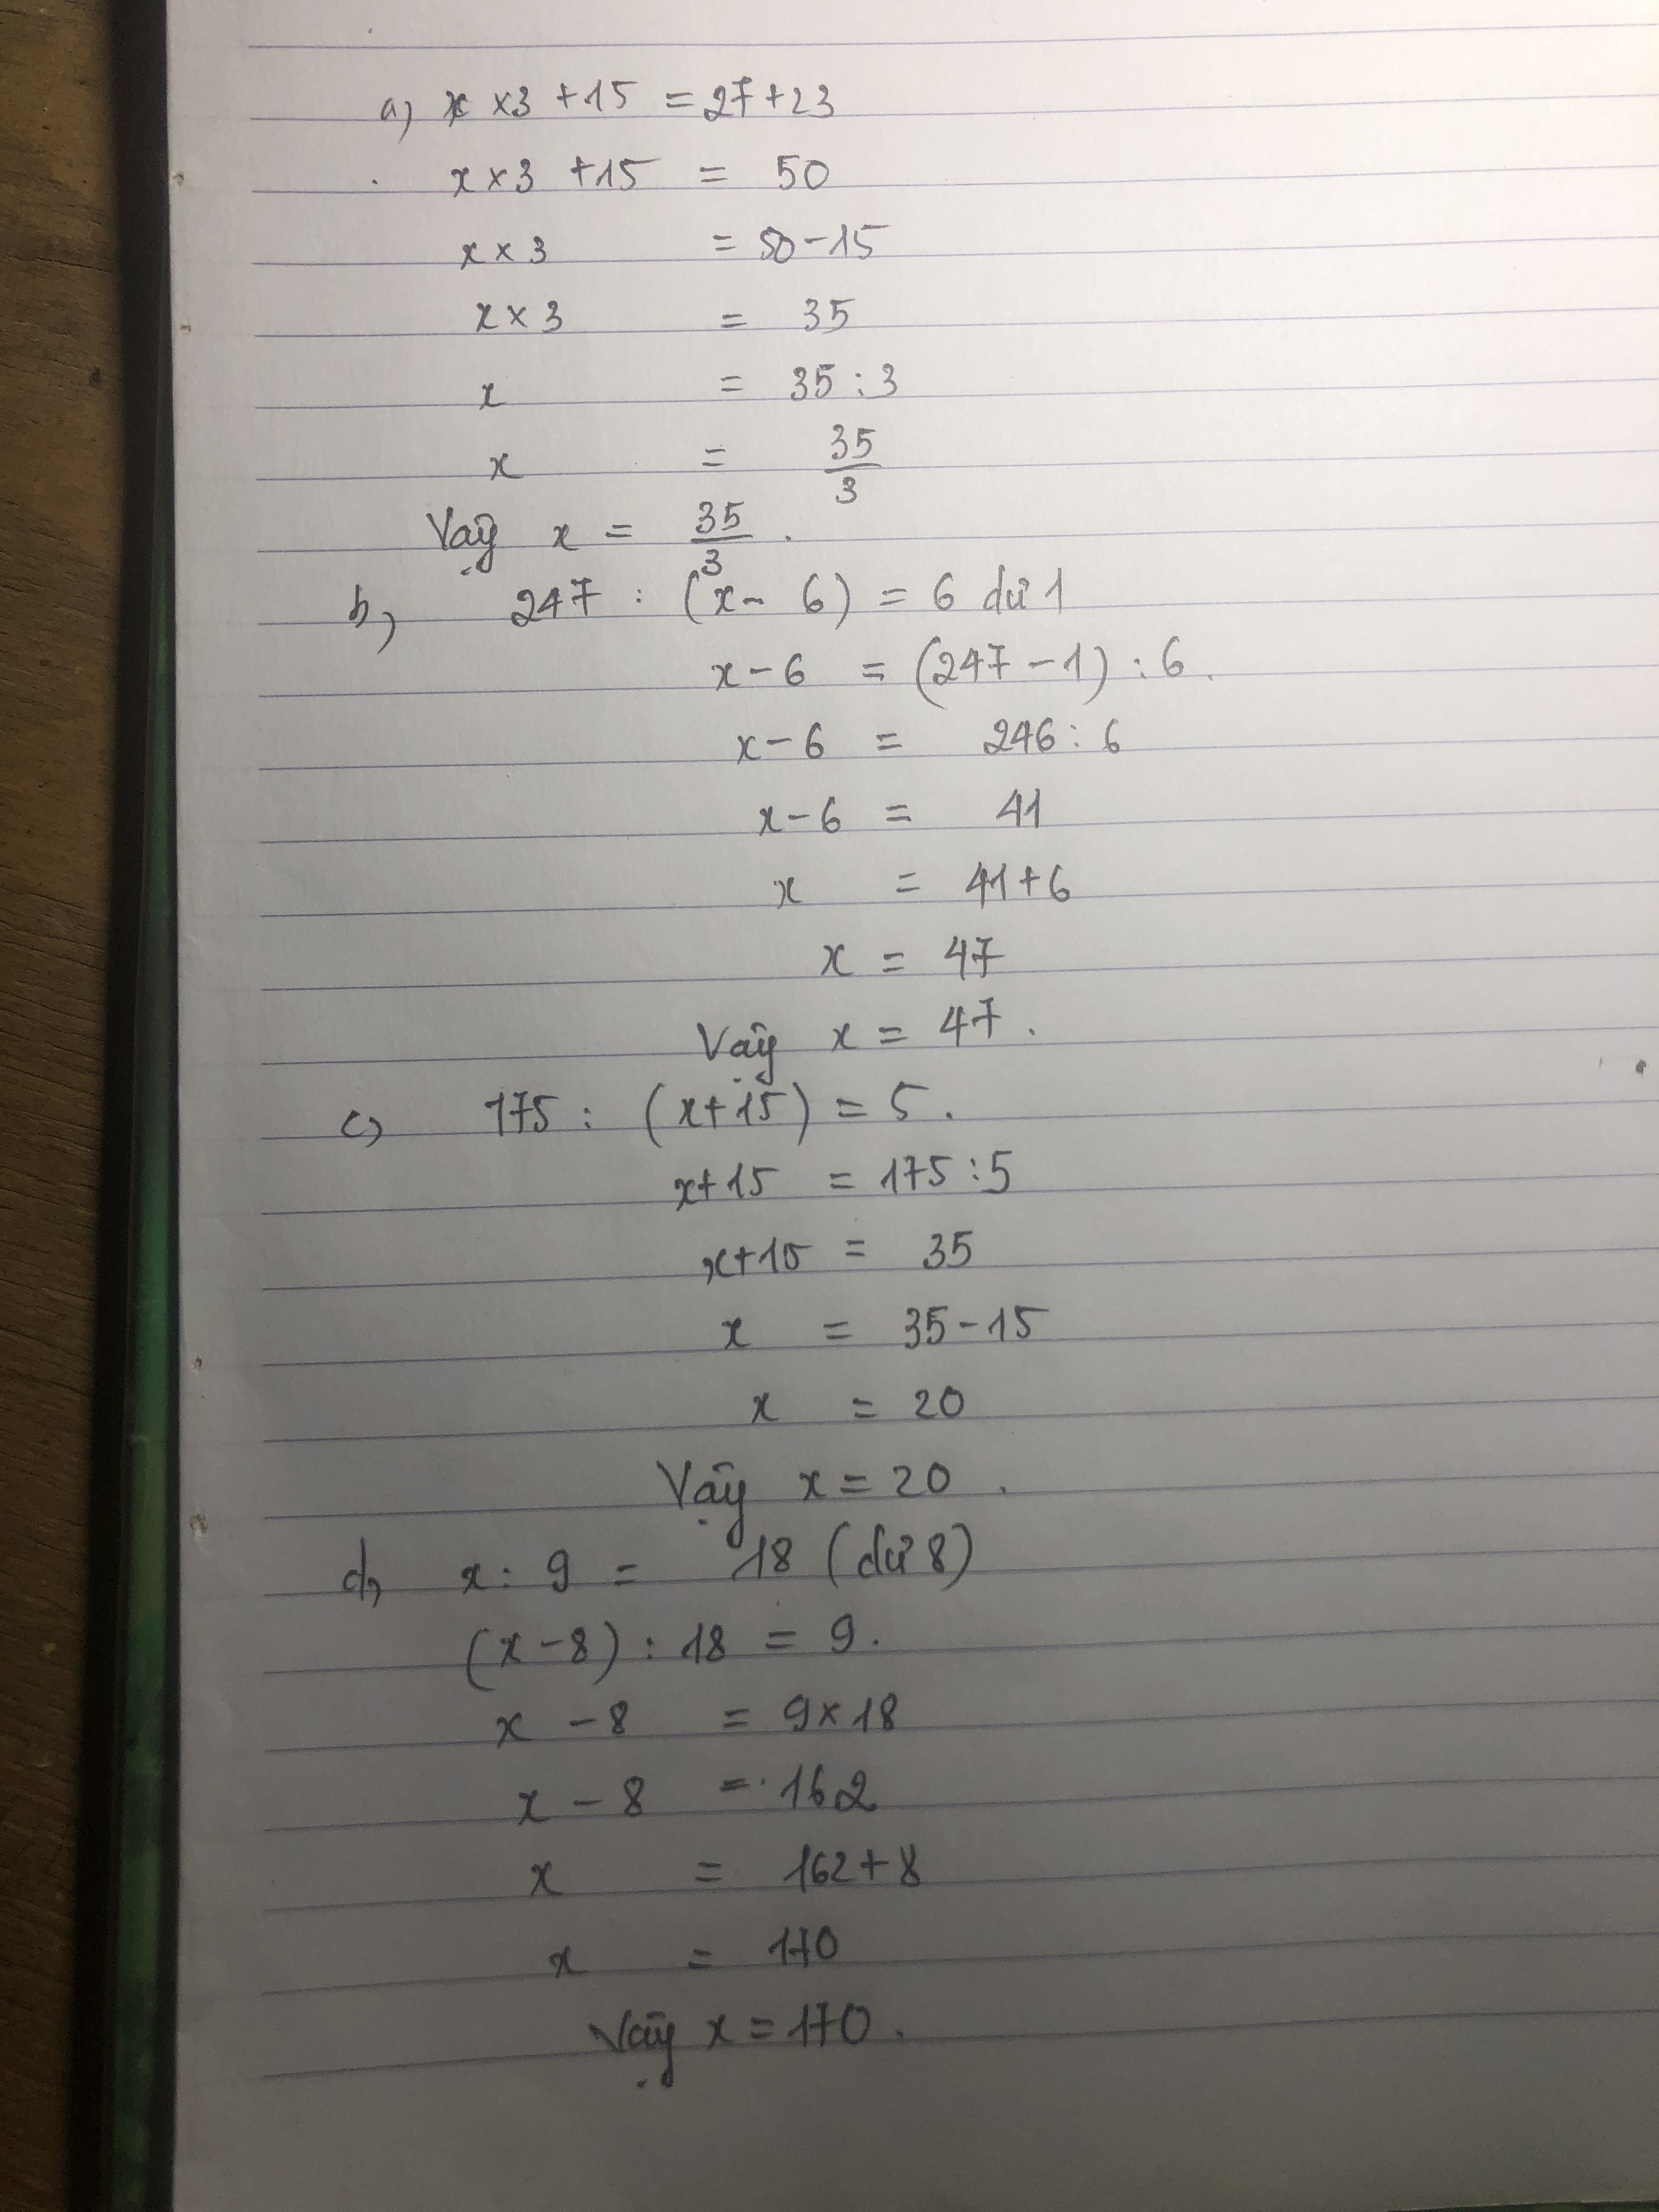 a) x × 3 + 15 = 27 + 23
x × 3 + 15 = 50
x × 3 = 50 - 15
x × 3 = 35
x = 35 : 3
x = 35/3
Vậy x = 35/3 .
b) 247 : (x - 6) = 6 dư 1
x - 6 = (247 - 1) : 6 .
x - 6 = 246 : 6
x - 6 = 41
x = 41 + 6
x = 47
Vậy x = 47 .
c) 175 : (x + 15) = 5 .
x + 15 = 175 : 5
x + 15 = 35
x = 35 - 15
x = 20
Vậy x = 20 .
d) x : 9 = 18 (dư 8)
(x - 8) : 18 = 9 .
x - 8 = 9 × 18
x - 8 = 162
x = 162 + 8
x = 170
Vậy x = 170 .